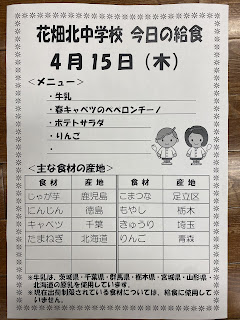 花畑北中学校 今日の給食
4月15日（木）
＜メニュー＞
・牛乳
・春キャベツのペペロンチーノ
・ポテトサラダ
・りんご
・
＜主な食材の産地＞
食材 産地 食材 産地
じゃが芋 鹿児島 こまつな 足立区
にんじん 徳島 もやし 栃木
キャベツ 千葉 きゅうり 埼玉
たまねぎ 北海道 りんご 青森
※牛乳は、茨城県・千葉県・群馬県・栃木県・宮城県・山形県・
北海道の原乳を使用しています。
※現在出荷制限されている食材については、給食に使用して
いません。